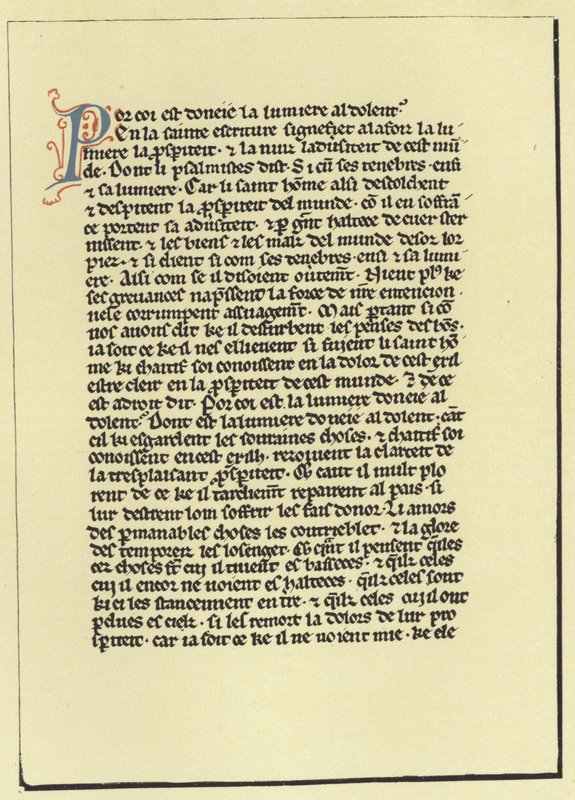 Por coi est doneie la lumiere al dolent.
En la sainte escriture signefiet a la foiz la lu
miere la ꝓspͥteit · ⁊ la nuit la dusiteit de cest mū
de · Dont li psalmistes dist · S i cū ses tenebres · ensi
⁊ sa lumiere · Car li saint hōme alsi destoldent
⁊ despitent la ꝓspͥteit del munde · cō il en soffrā
ce portent sa aduͥsiteit · ⁊ ꝑ gͣnt haltece de cuer ster
nissent · ⁊ les biens ⁊ les malz del munde desoz loz
piez · ⁊ si dient si com ses tenebres · ensi ⁊ sa lumi
ere · Alsi com se il disoient · Nient plꝰ ke
ses greuances nap̄ssent la force de nr̄e entencion ·
nele corrumpent assuagemt̄ · Mais ꝑtant si cō
nos auons dit ke il desturbent les penses des bōs ·
ia soit ce ke il nes ellieuent si fuient li saint hō
me ki chaitif soi conoissent en la dolor de cest exil
estre cleir en la ꝓspͥteit de cest munde · de ce
est adroit dit · Por coi est la lumiere doneie al
dolent · Dont est la lumiere doneie al dolent · cāt
cil ki esgardent les souraines choses · ⁊ chaitif soi
conoissent en cest exilh · rezoiuent la clarteit de
la tresplaisant ꝓspͥteit · Et cant il mult plo
rent de ce ke il tardiement repairent al pais · si
lur destrent loin soffrir les fais donor · Li amors
des ꝑmanables choses les contrieblet · ⁊ la glore
des temporeiz les losenget · Et qͣnt il pensent qͥlles
cez choses sūt cui il tinent es basseces · ⁊ qͥlz celes
cui il encor ne uoient es halteces · qͥlz celes sont
ki ci les stancennent en tr̄e · ⁊ qͥlz celes cui il ont
ꝑdues es cielz · si les remort la dolors de lur pro
spͥteit · car ia soit ce ke il ne uoient mie · ke ele